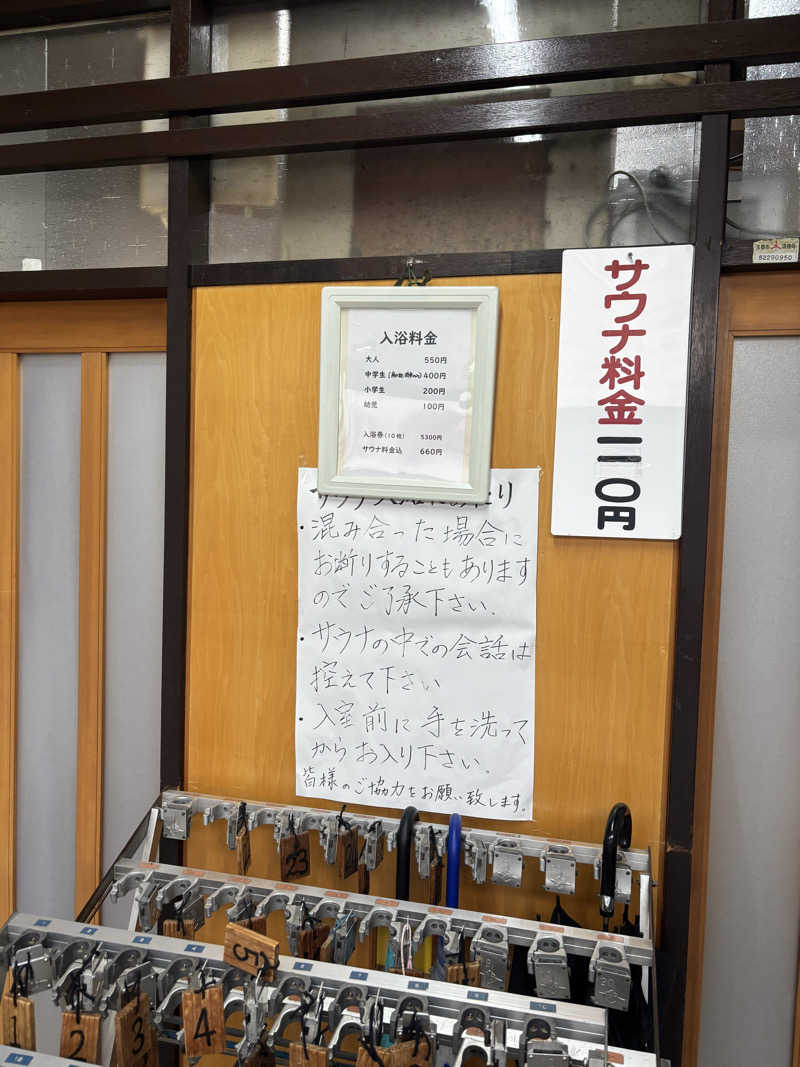 入浴料金
大人 550円
中学生 400円
小学生 200円
幼児 100円
入浴券(10枚) 5300円
サウナ料金込 660円
サウナ料金
一一〇円
・混み合った場合に
お断りすることもあります
のでご了承下さい.
・サウナの中での会話は
控えて下さい
・入室前に手を洗って
からお入り下さい.
皆様のご協力をお願い致します.
B2290950
23
5
1
2
3
4